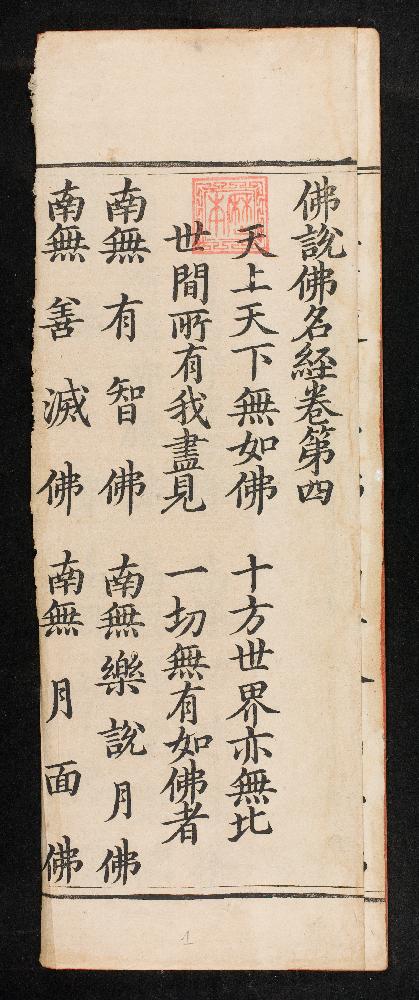 佛說佛名經卷第四
天上天下無如佛 十方世界亦無比
世間所有我盡見 一切無有如佛者
南無有智佛 南無樂說月佛
南無善滅佛 南無月面佛
1